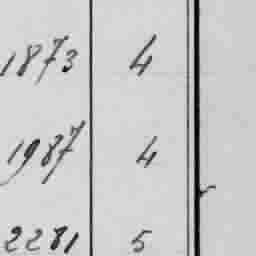 1873 4
1987 4
2281 5